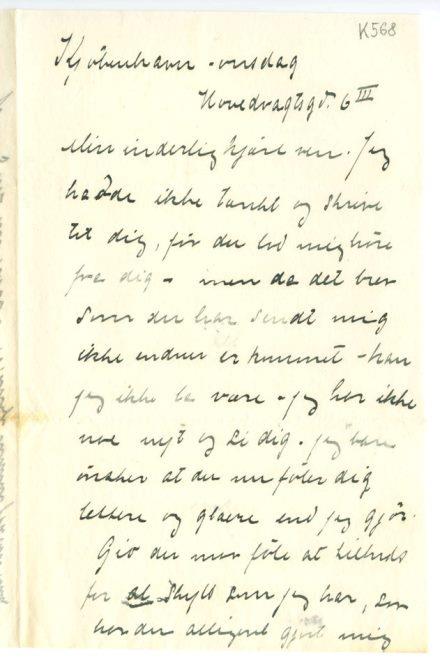 K568
Kjøbenhavn - onsdag
Hovedvagtsgd. 6 III
Min inderlig kjære ven. Jeg
hadde ikke tænkt og skrive
til dig, før du lod mig høre
fra dig - men da det brev
som du har sendt mig
ikke endnu er kommet - kan
jeg ikke la være - jeg har ikke
noe nyt og si dig. jeg bare
ønsker at du nu føler dig
lettere og glaere end jeg gjör.
Giv du maa føle at tiltrods
for al skyld som jeg har, saa
har du alligevel gjort mig